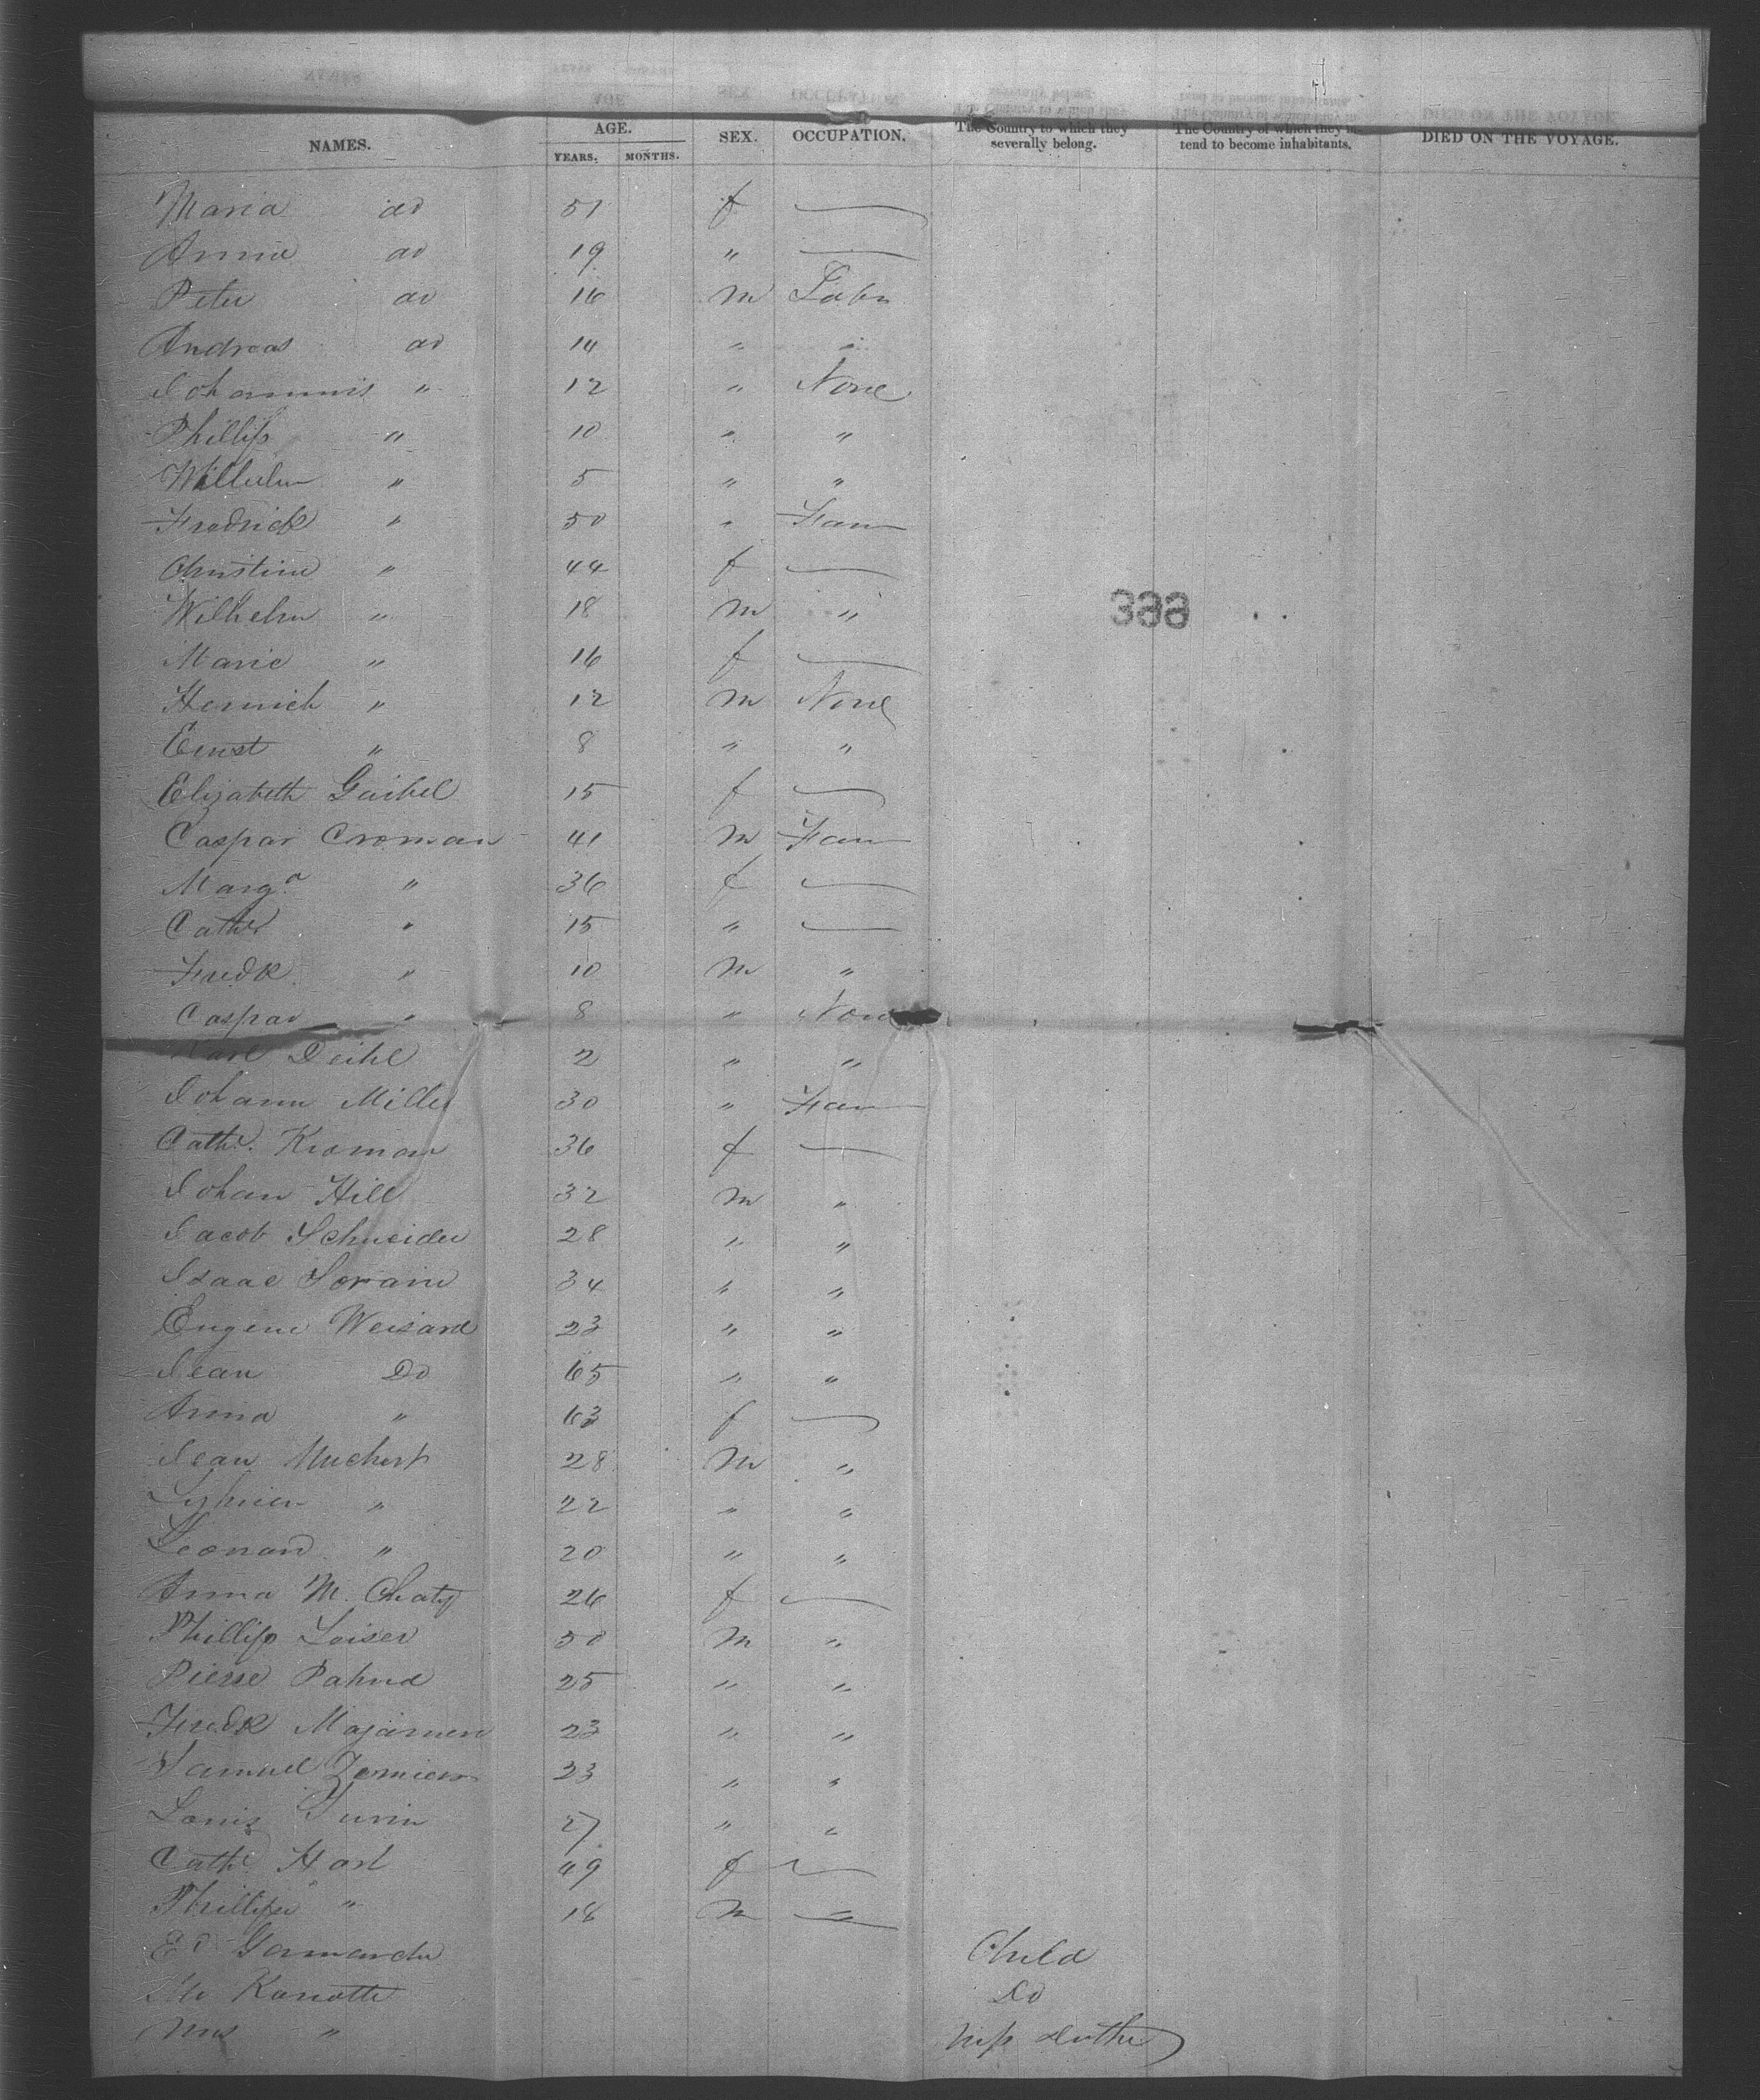 NAMES. AGE. YEARS. MONTHS. SEX. OCCUPATION. The Country to which they severally belong. The Country of which they in- tend to become inhabitants. DIED ON THE VOYAGE.
Maria do 51 f
Anna do 19 "
Peter do 16 m Labr
Andreas do 14 " "
Johannis " 12 " None
Phillip " 10 " "
Wilhelm " 5 " "
Fredrick " 50 " Farm
Christine " 44 f
Wilhelm " 18 m "
Marie " 16 f
Henrich " 12 m None
Ernst " 8 " "
388
Elizabeth Gaibel 15 f
Caspar Croman 41 m Farm
Marga " 36 f
Cathe " 15 "
Fredk " 10 m "
Caspar " 8 " None
Karl Deihl 2 " "
Johann Miller 30 " Farm
Cathe. Kroman 36 f
Johan Hill 32 m "
Jacob Schneider 28 " "
Isaac Sorain 34 " "
Eugene Weisard 23 " "
Jean Do 65 " "
Anna " 63 f
Jean Muchert 28 m "
" 22 " "
Leonard " 20 " "
Anna M. Chaty 26 f
Phillip Loiser 50 m "
Pierre Pahud 25 " "
Fredk Majamen 23 " "
Samuel 23 " "
Louis Turin 27 " "
Cathe Hart 49 f
Phillip " 18 m "
Ed Child
Kanotte Do
Mrs "